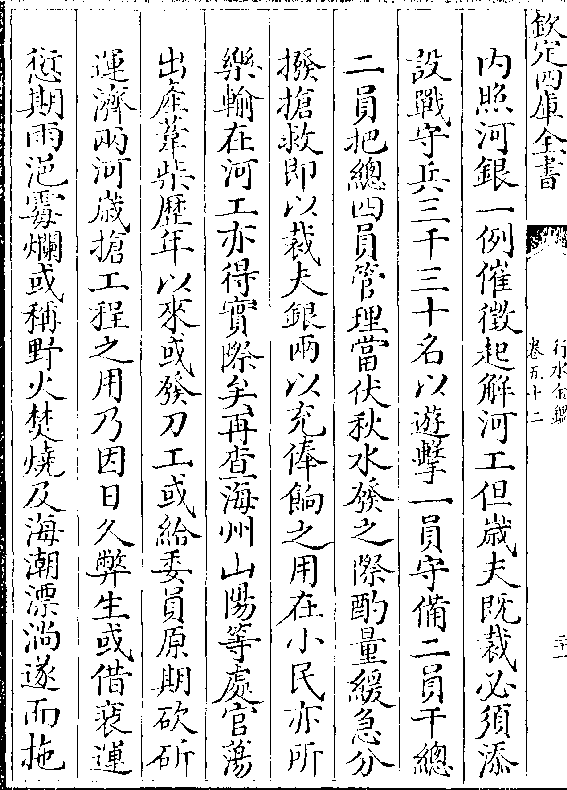 欽定四庫全書
行水金鑑
卷五十二
內照河銀一例催徵起解河工但歲夫既裁必須添
設戰守兵三千三十名以遊擊一員守備二員千總
二員把總四員管理當伏秋水發之際酌量緩急分
撥搶救即以裁夫銀兩以充俸餉之用在小民亦所
樂輸在河工亦得實際矣再查海州山陽等處官蕩
出產葦柴歷年以來或發刀工或給委員原期砍斫
運濟兩河歲搶工程之用乃因日久弊生或借裝運
愆期雨浥霉爛或稱野火焚燒及海潮漂淌遂而拖